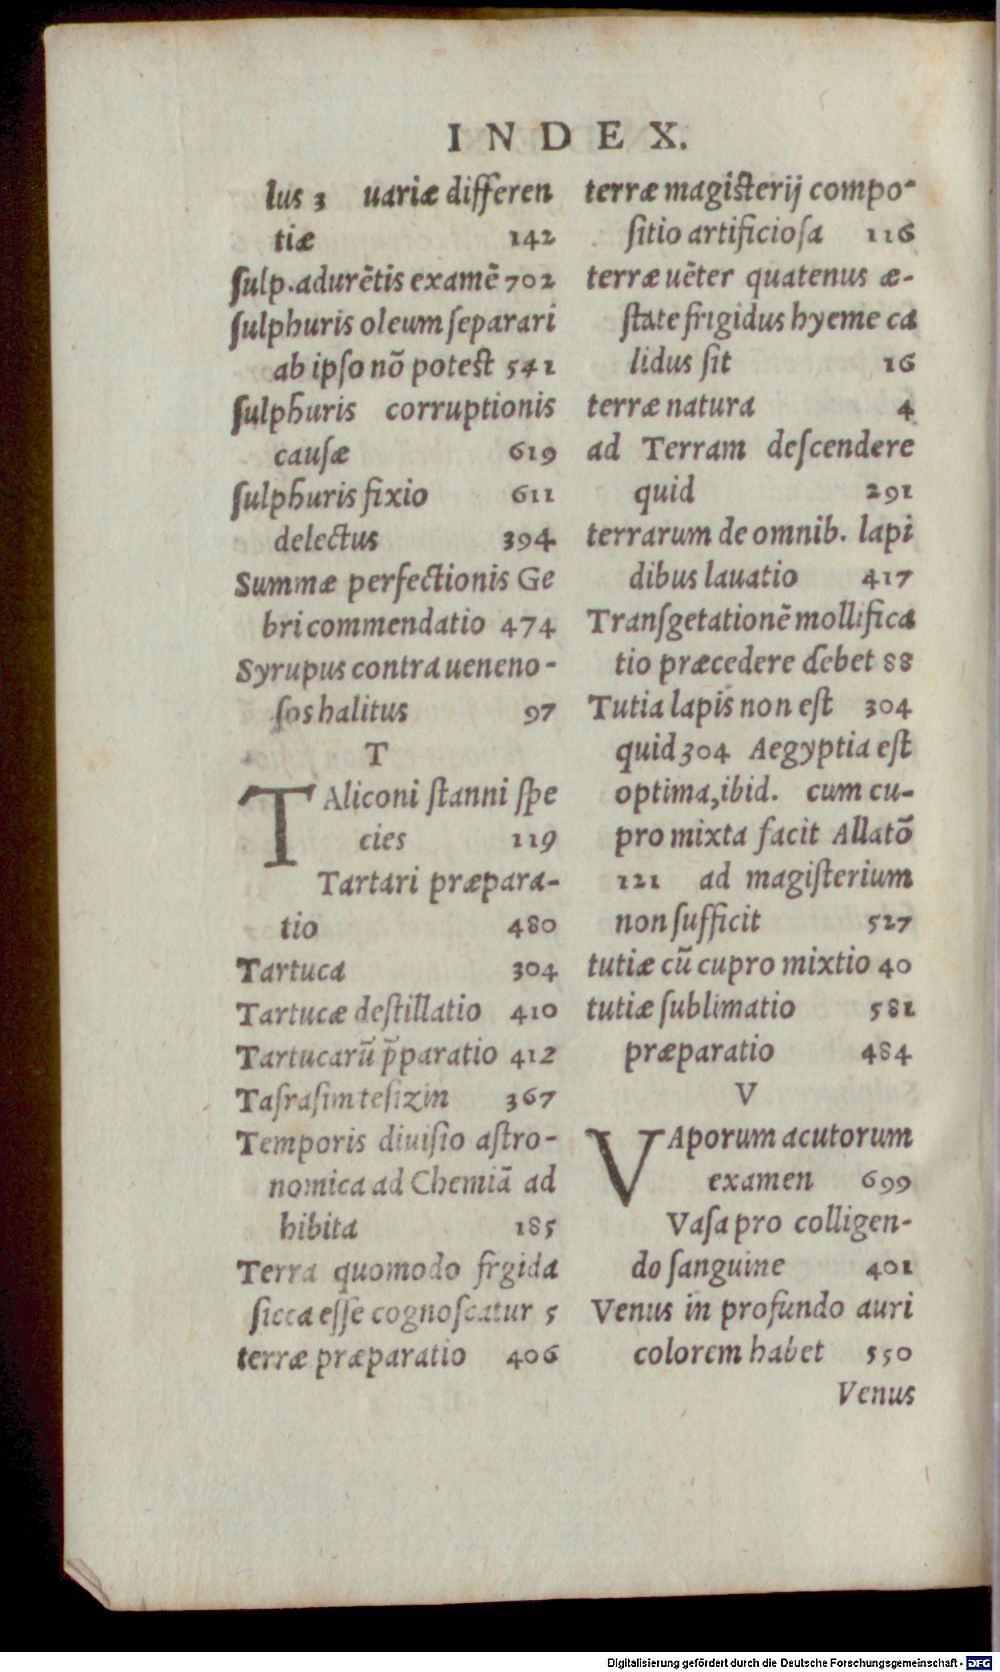 INDEX.
lus 3 uariæ differen
tiæ 142
ſulp. adurẽtis examẽ 702
ſulphuris oleum ſeparari
ab ipſo nõ potest 541
ſulphuris corruptionis
cauſæ 619
ſulphuris fixio 611
delectus 394
Summæ perfectionis Ge
bri commendatio 474
Syrupus contra ueneno-
ſos halitus 97
T
TAliconi ſtanni ſpe
cies 119
Tartari præpara-
tio 480
Tartuca 304
Tartucæ deſtillatio 410
Tartucarũ p̃paratio 412
Taſraſim teſizin 367
Temporis diuiſio aſtro-
nomica ad Chemiã ad
hibita 185
Terra quomodo frgida
ſicca eſſe cognoſcatur 5
terræ præparatio 406
terræ magiſterij compo-
ſitio artificioſa 116
terræ uẽter quatenus æ-
ſtate frigidus hyeme ca
lidus ſit 16
terræ natura 4
ad Terram deſcendere
quid 291
terrarum de omnib. lapi
dibus lauatio 417
Tranſgetationẽ mollifica
tio præcedere debet 88
Tutia lapis non eſt 304
quid 304 Aegyptia eſt
optima, ibid. cum cu-
pro mixta facit Allatõ
121 ad magiſterium
non ſufficit 527
tutiæ cũ cupro mixtio 40
tutiæ ſublimatio 581
præparatio 484
V
VAporum acutorum
examen 699
Vaſa pro colligen-
do ſanguine 401
Venus in profundo auri
colorem habet 550
Venus
Digitalisierung gefördert durch die Deutsche Forschungsgemeinschaft - DFG